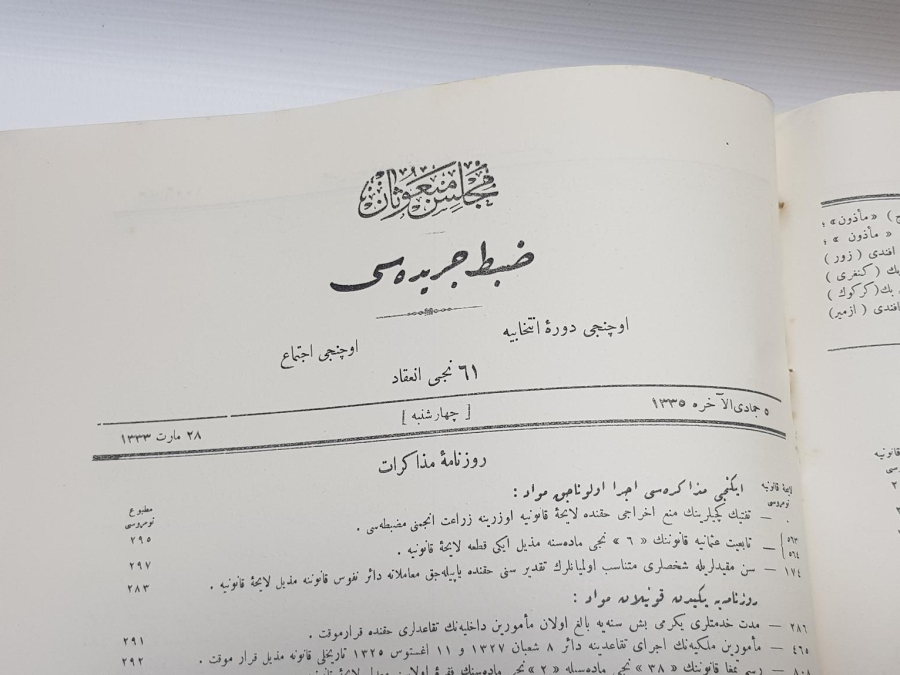 مجلس مبعوثان
ضبط جریده‌سی
اوچنجی دورهٔ انتخابیه
اوچنجی اجتماع
٦١ نجی انعقاد
٥ جمادی الآخره ١٣٣٥
[ چهارشنبه ]
٢٨ مارت ١٣٣٣
روزنامهٔ مذاکرات
لایحهٔ قانونیه نومروسی
ایکنجی مذاکره‌سی اجرا اولوناجق مواد :
مطبوع نومروسی
٠ — تفتیك کچیلرینك منع اخراجی حقنده لایحهٔ قانونیه اوزرینه زراعت انجمنی مضبطه‌سی .
٢٩٥
٥٦٣ ٥٦٤ — تابعیت عثمانیه قانوننك « ٦ » نجی ماده‌سنه مذیل ایکی قطعه لایحهٔ قانونیه .
٢٩٧
١٧٤ — سن مقیدلریله شخصلری متناسب اولمیانلرك تقدیر سنی حقنده یاپیله‌جق معاملاته دائر نفوس قانوننه مذیل لایحهٔ قانونیه .
٢٨٣
روزنامه‌یه یکیدن قونیلان مواد :
٢٨٦ — مدت خدمتلری یکرمی بش سنه‌یه بالغ اولان مأمورین داخلیه‌نك تقاعدلری حقنده قرارموقت .
٢٩١
٤٦٥ — مأمورین ملکیه‌نك اجرای تقاعدینه دائر ٨ شعبان ١٣٢٧ و ١١ اغستوس ١٣٢٥ تاریخلی قانونه مذیل قرار موقت .
٢٩٢
٨٠٨ — رسم تمغا قانوننك « ٣٨ » نجی ماده‌سیله « ٢ » نجی ماده‌سنك
« مأذون» ؛
« مأذون » ؛
افندی ( زور )
بك ( کنغری )
بك (کرکوك )
افندی ( ازمیر)